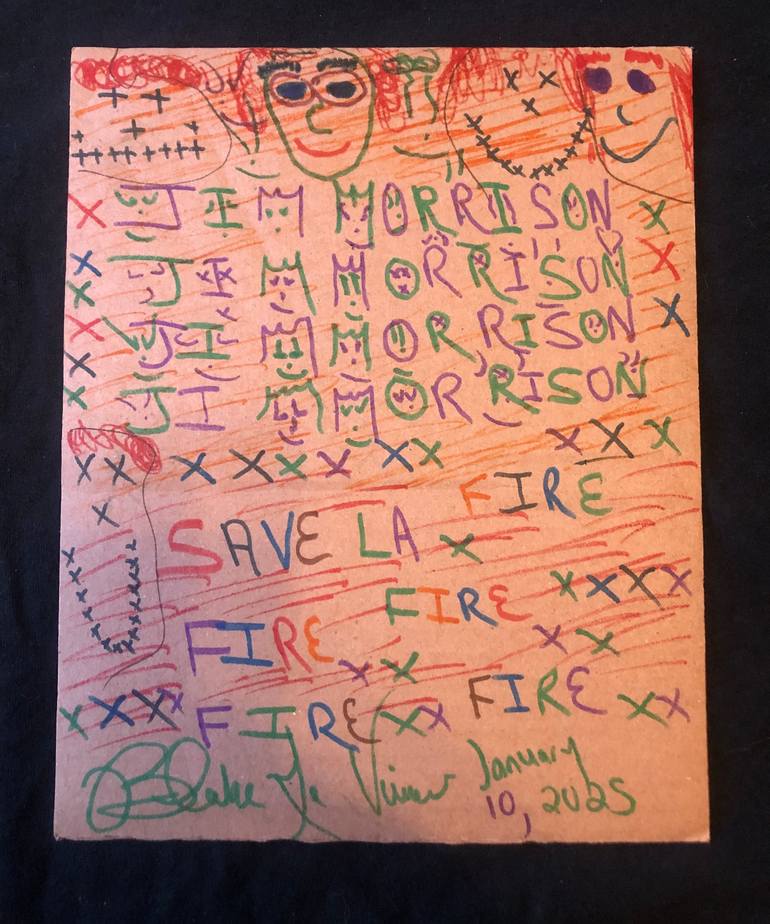 JIM MORRISON
JIM MORRISON
JIM MORRISON
JIM MORRISON
FIRE
SAVE LA
FIRE
FIRE
FIRE
FIRE
Blake January
10, 2025